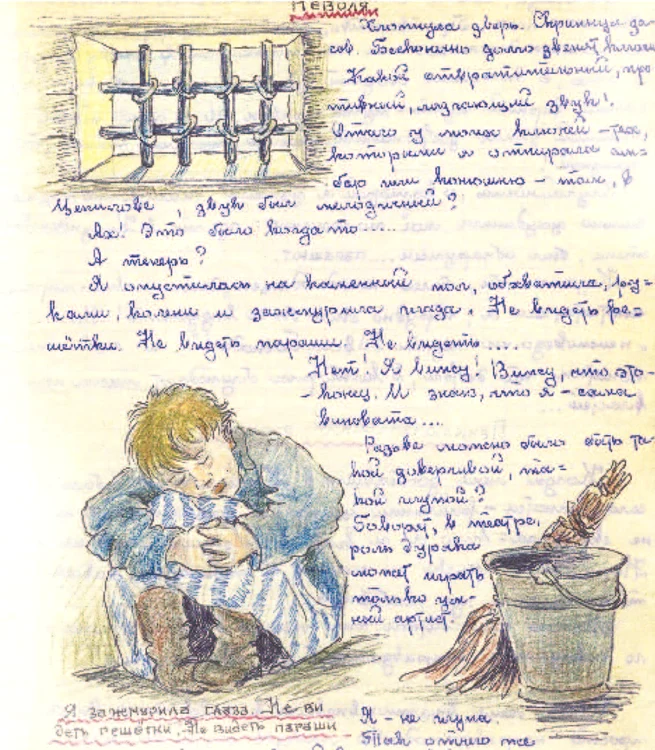 Неволя
Хлопнула дверь. Скрипнул за-
сов. Бесконечно долго звенят ключи
Какой отвратительный, про
тивный, лязгающий звук!
Отчего у моих ключей – тех,
которыми я отпирала ам=
бар или конюшню – там, в
Цепилове, звук был мелодичней?
Ах! Это было когда-то...
А теперь?
Я опустилась на каменный пол, обхватила, ру=
ками, колени и зажмурила глаза. Не видеть ре=
шётки. Не видеть параши. Не видеть...
Нет! Я вижу! Вижу, что это-
- конец. И знаю, что я – сама
виновата...
Разве можно было быть та-
кой доверчивой, та=
кой глупой?
Говорят, в театре,
роль дурака
может играть
только ум-
ный артист.
Я зажмурила глаза. Не ви
деть решётки. Не видеть параши
Я – не глупа.
Так отчего же